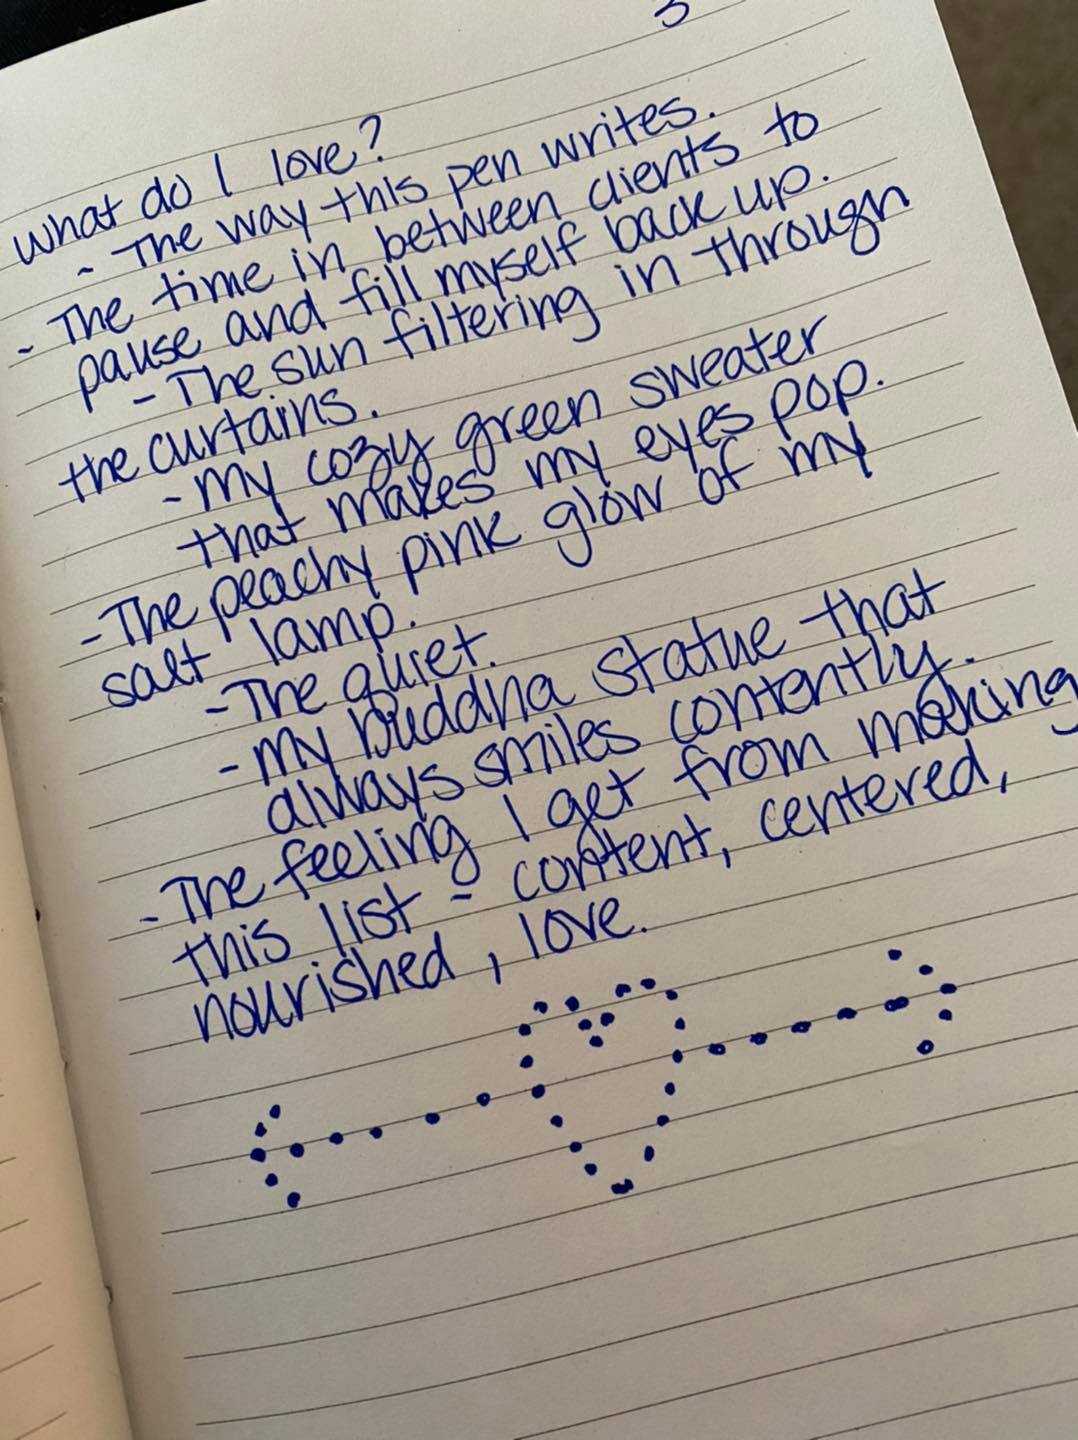 3
What do I love?
- The way this pen writes.
- The time in between clients to
pause and fill myself back up.
- The sun filtering in through
the curtains.
- My cozy green sweater
that makes my eyes pop.
- The peachy pink glow of my
salt lamp.
- The quiet.
- My buddha statue that
always smiles contently.
- The feeling I get from making
this list - content, centered,
nourished, love.